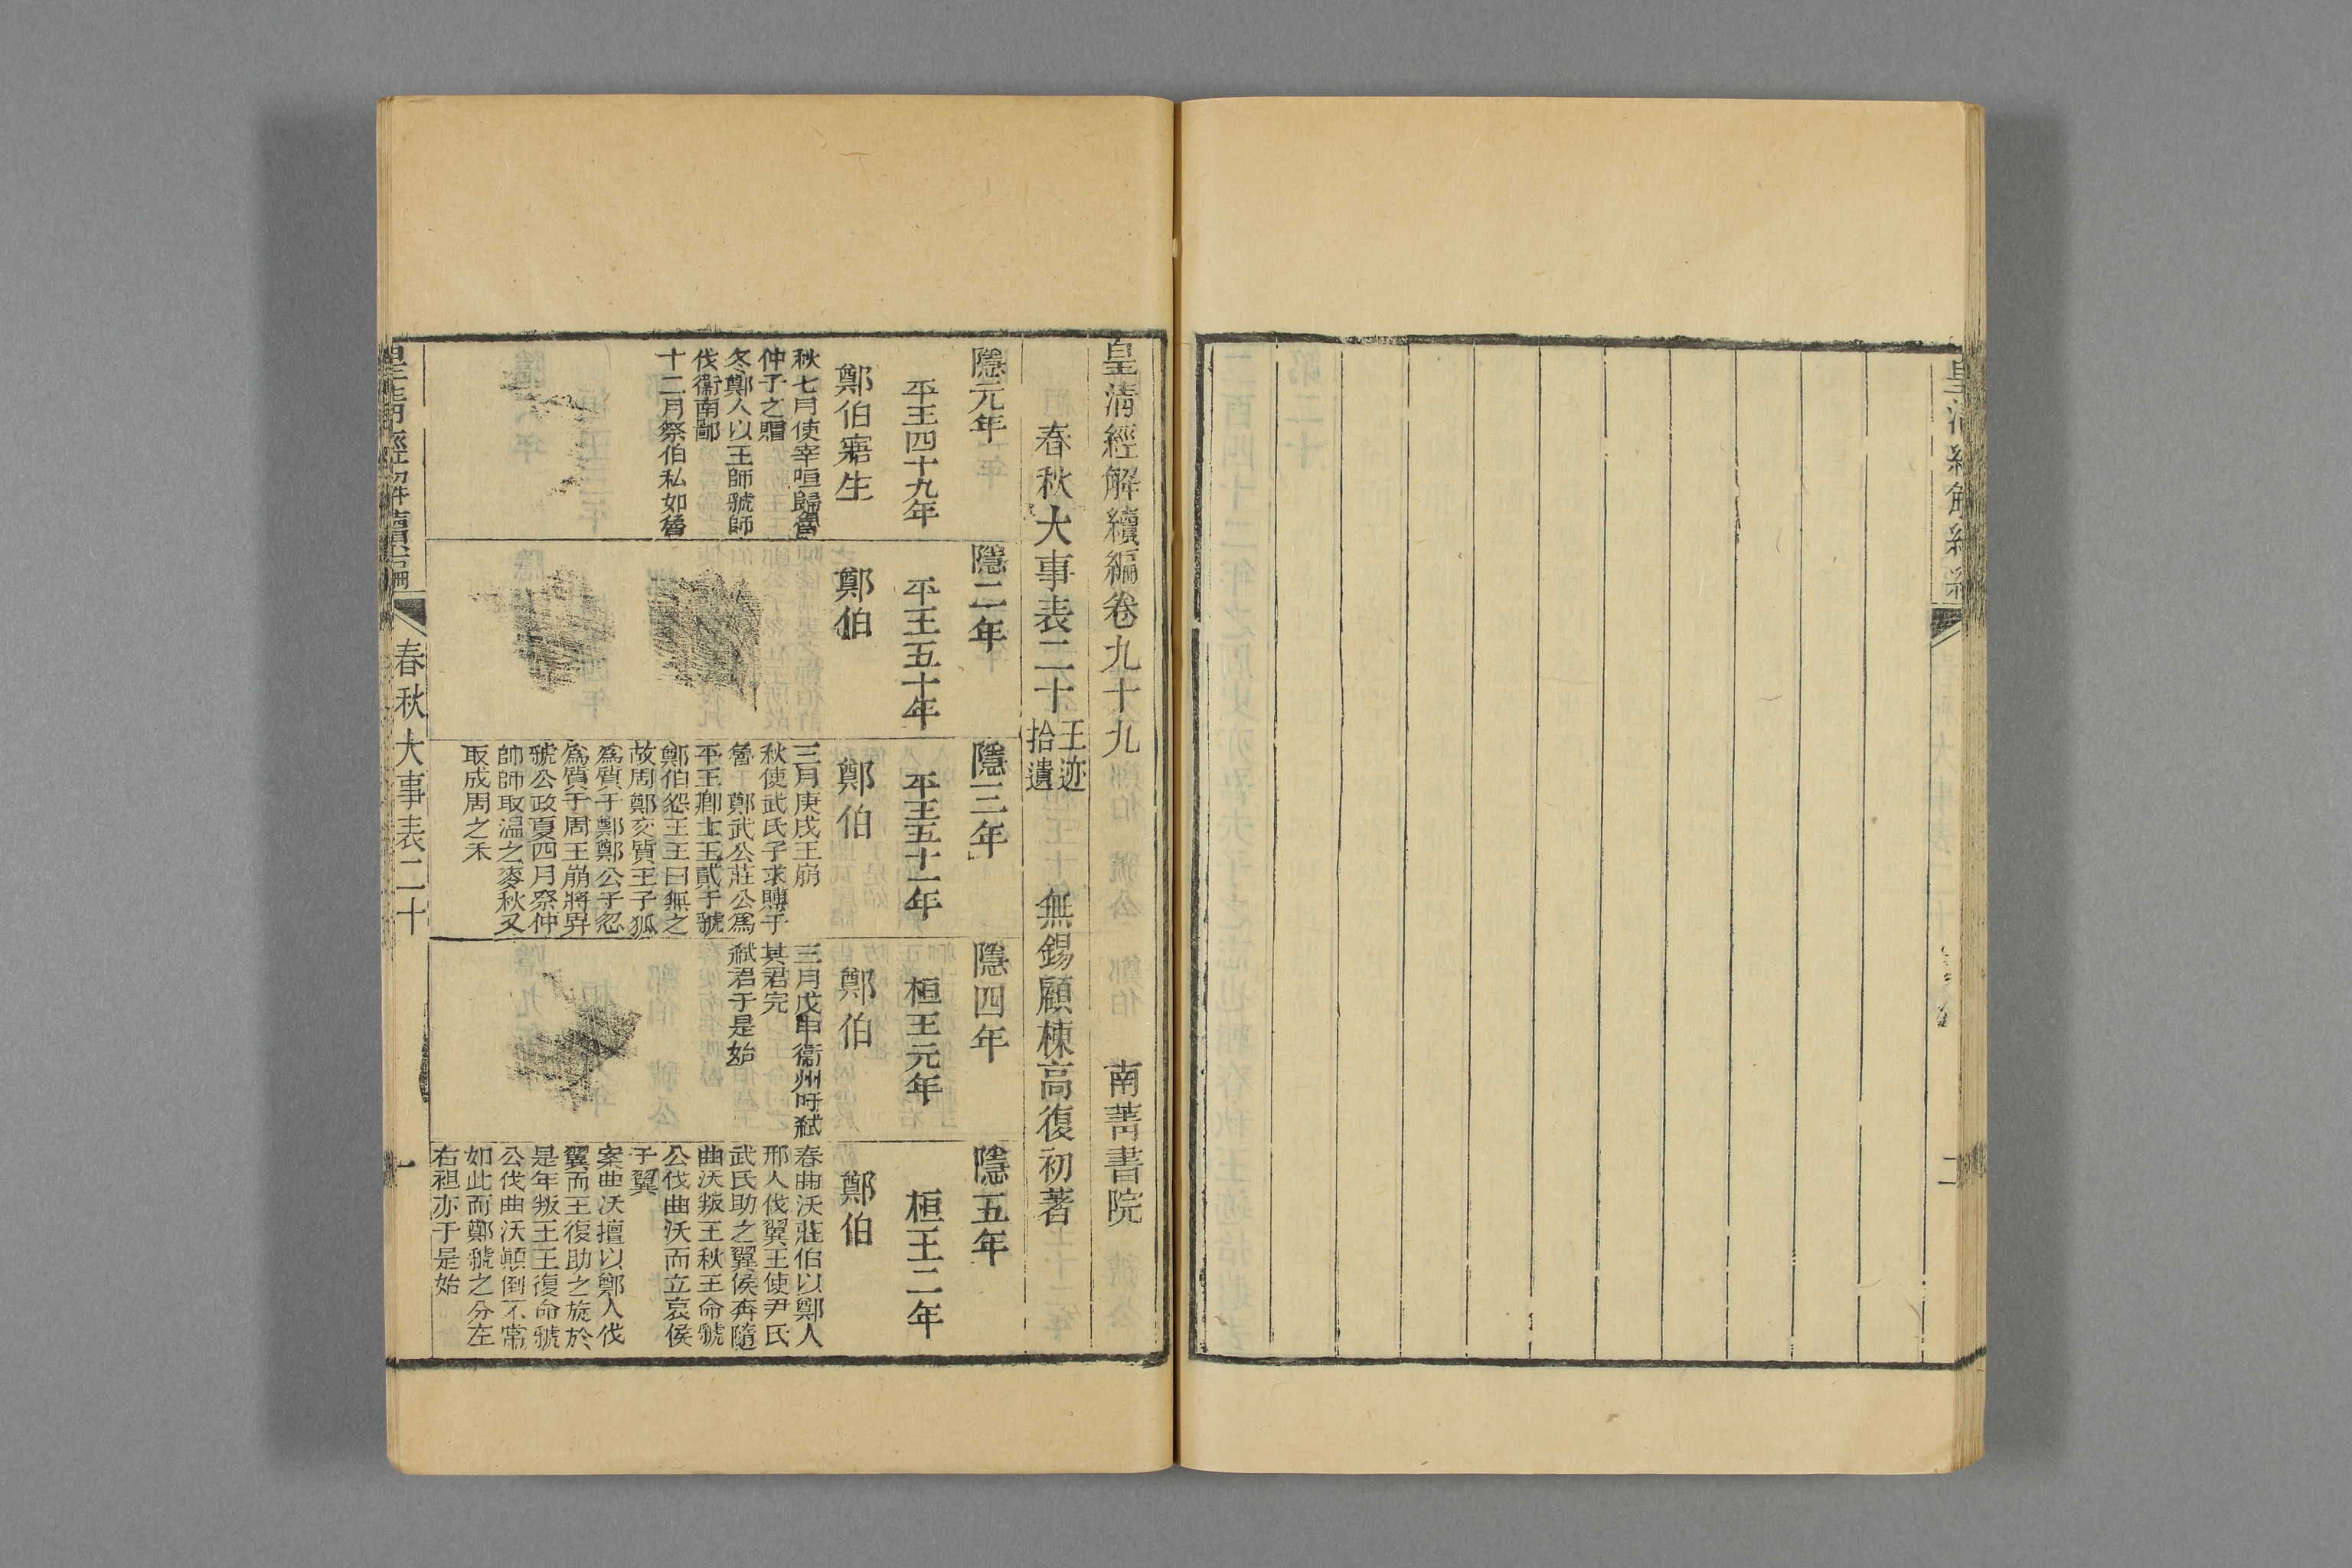 二
皇清經解續編卷九十九
南菁書院
春秋大事表二十
王迹
拾遺
無錫顧棟高復初著
隱元年
平王四十九年
鄭伯寤生
秋七月使宰咺歸魯
仲子之賵
冬鄭人以王師虢師
伐衞南鄙
十二月祭伯私如魯
隱二年
平王五十年
鄭伯
隱三年
平王五十一年
鄭伯
三月庚戌王崩
秋使武氏子求賻于
魯　鄭武公莊公爲
平王卿士王貳于虢
鄭伯怨王王曰無之
故周鄭交質王子狐
爲質于鄭鄭公子忽
爲質于周王崩將畀
虢公政夏四月祭仲
帥師取温之麥秋又
取成周之禾
隱四年
桓王元年
鄭伯
三月戊申衞州吁弑
其君完
弑君于是始
隱五年
桓王二年
鄭伯
春曲沃莊伯以鄭人
邢人伐翼王使尹氏
武氏助之翼侯奔隨
曲沃叛王秋王命虢
公伐曲沃而立哀侯
于翼
案曲沃擅以鄭人伐
翼而王復助之旋於
是年叛王王復命虢
公伐曲沃顚倒不常
如此而鄭虢之分左
右袒亦于是始
春秋大事表二十
一